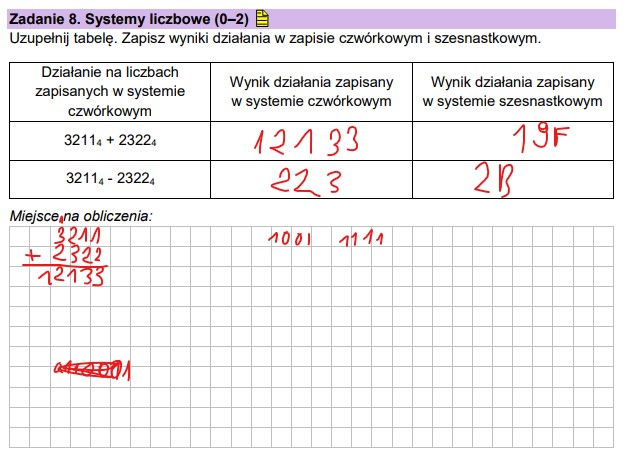 Zadanie 8. Systemy liczbowe (0–2)
Uzupełnij tabelę. Zapisz wyniki działania w zapisie czwórkowym i szesnastkowym.
Działanie na liczbach zapisanych w systemie czwórkowym
Wynik działania zapisany w systemie czwórkowym
Wynik działania zapisany w systemie szesnastkowym
3211₄ + 2322₄ 12133 19F
3211₄ - 2322₄ 223 2B
Miejsce na obliczenia:
1
3211 1001 1111
+ 2322
12133